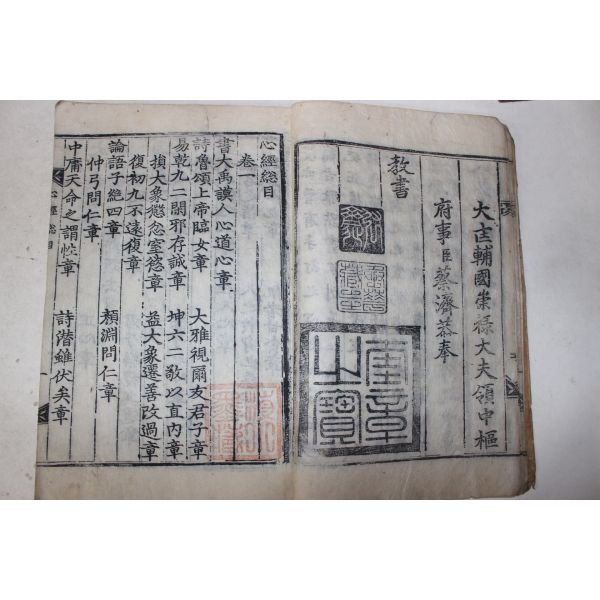 大匡輔國崇祿大夫領中樞
府事臣蔡濟恭奉
教書
奎章之寶
心經總目
卷一
書大禹謨人心道心章
詩魯頌上帝臨女章 大雅視爾友君子章
易乾九二閑邪存誠章 坤六二敬以直內章
損大象懲忿窒慾章 益大象遷善改過章
復初九不遠復章
論語子絶四章 顏淵問仁章
仲弓問仁章
中庸天命之謂性章 詩潛雖伏矣章
心經總目